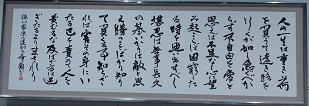 人の一生は重き荷
を負うて遠き道を
行くが如し急ぐべか
らず不自由を常と
思えば不足なし心に望
み起らば困窮した
る時を思い出すべし
堪忍は無事長久
の基いかりは敵と思
え勝つことばかり知り
て負くることを知らざ
れば害その身にい
たる己を責めて人を
責むるな及ばざるは過
ぎたるよりまされり
徳川家康公遺訓